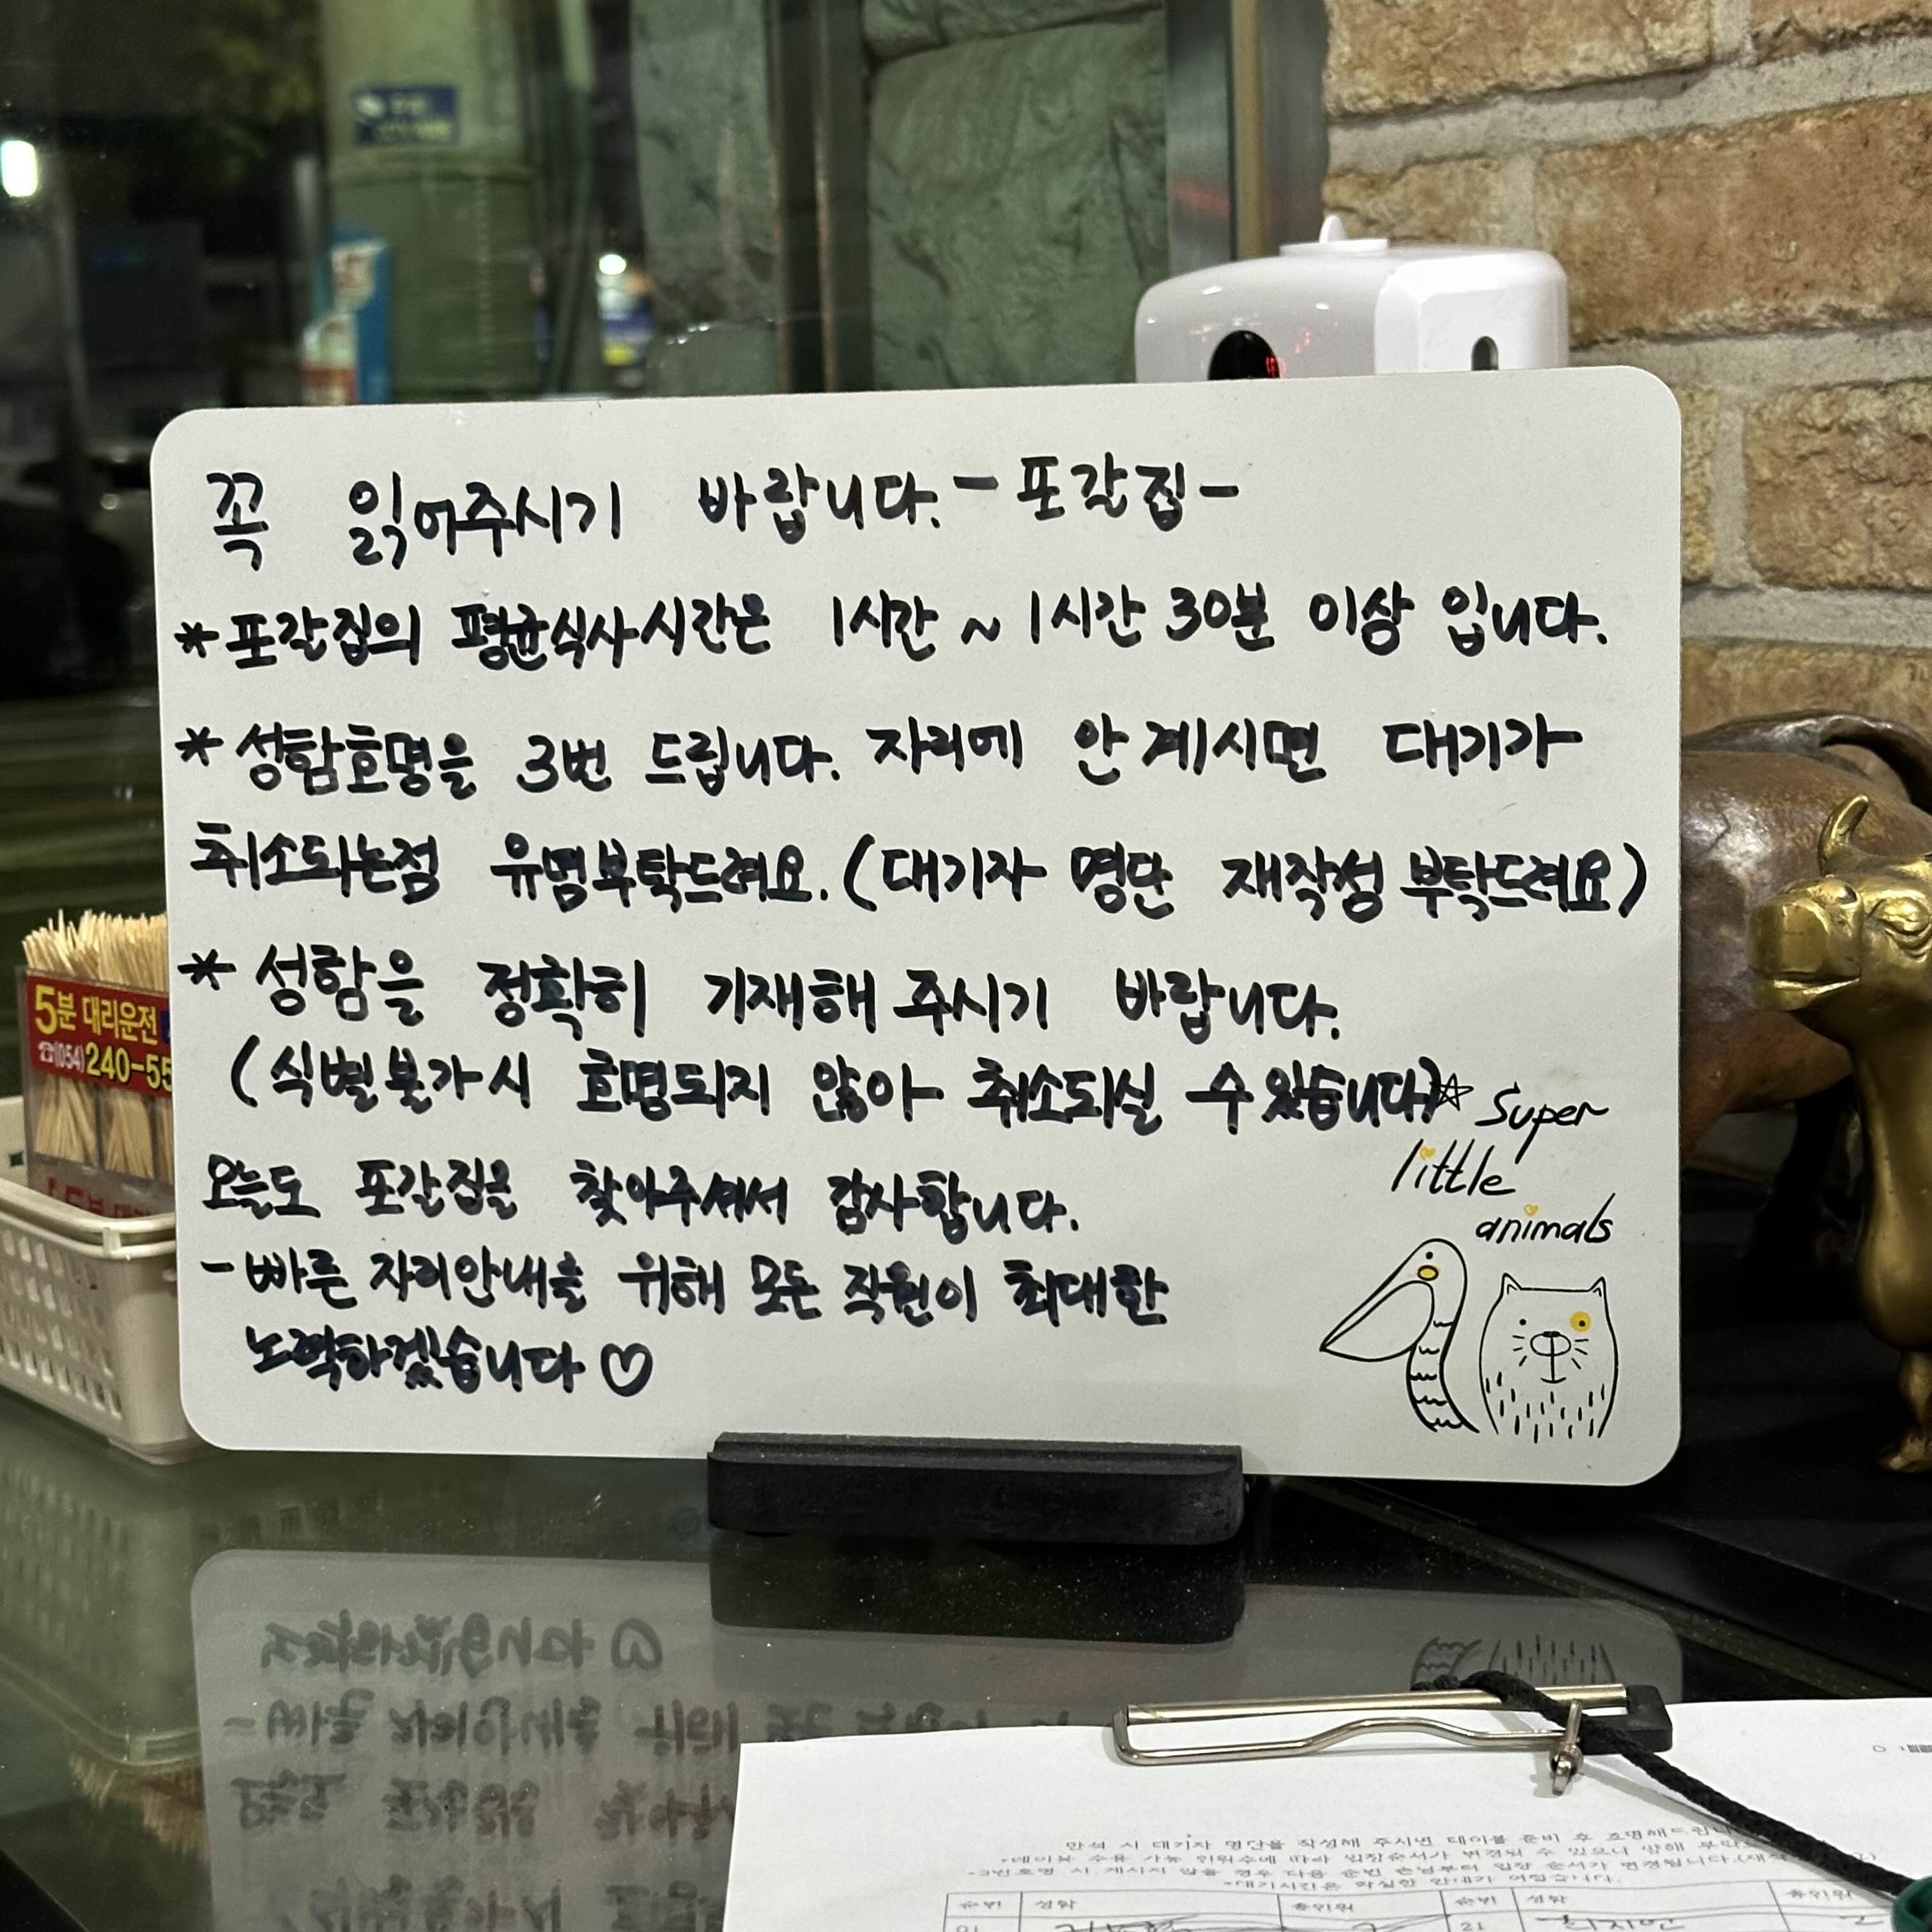 꼭 읽어주시기 바랍니다. - 포갈집 -
* 포갈집의 평균식사시간은 1시간 ~ 1시간 30분 이상 입니다.
* 성함호명을 3번 드립니다. 자리에 안계시면 대기가
취소되는점 유념부탁드려요. (대기자 명단 재작성 부탁드려요)
* 성함을 정확히 기재해 주시기 바랍니다.
(식별불가시 호명되지 않아 취소되실 수 있습니다.)☆
Super
little
animals
오늘도 포갈집을 찾아주셔서 감사합니다.
- 빠른 자리안내를 위해 모든 직원이 최대한
노력하겠습니다 ♡
5분 대리운전
☎(054)240-55
만석 시 대기자 명단을 작성해 주시면 테이블 준비 후 호명해드립니다
*테이블 수용 가능 인원수에 따라 입장순서가 변경될 수 있으니 양해
*3번호명 시 계시지 않을 경우 다음 순번 손님부터 입장 순서가 변경됩니다.
*대기시간은 확실한 안내가 어렵습니다.
순번 성함 총인원 순번 성함 총인원
01 21